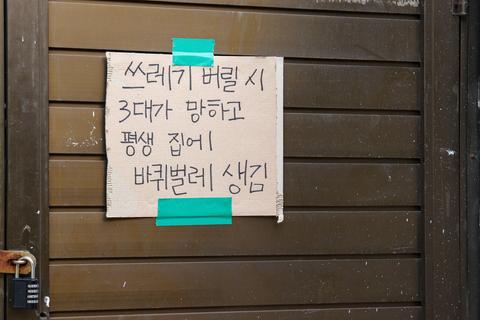 쓰레기 버릴 시
3대가 망하고
평생 집에
바퀴벌레 생김